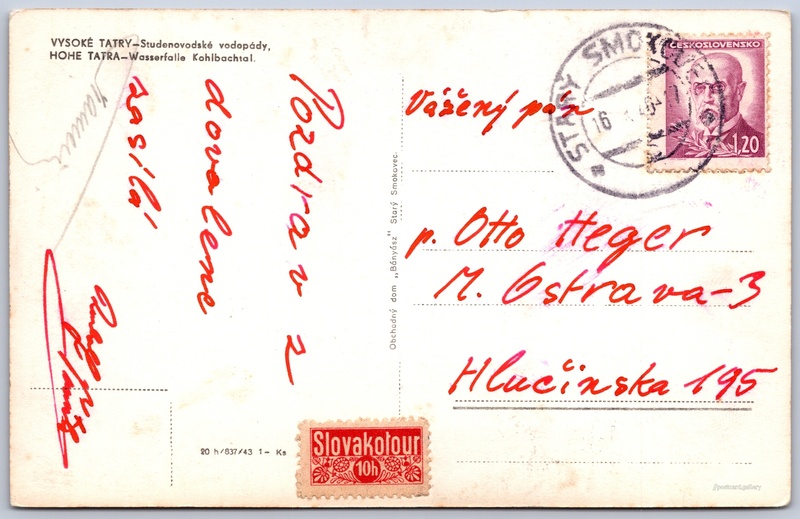 VYSOKÉ TATRY—Studenovodské vodopády,
HOHE TATRA—Wasserfalle Kohlbachtal.
Pozdrav z
dovolene
zasílá
Obchodný dom "Bányász" Starý Smokovec.
20 h/837/43 1- Ks
Slovakotour
10h
STARÝ SMOKOVEC
16
ČESKOSLOVENSKO
1,20
Vážený pán
p. Otto Heger
M. Ostrava-3
Hlučinska 195